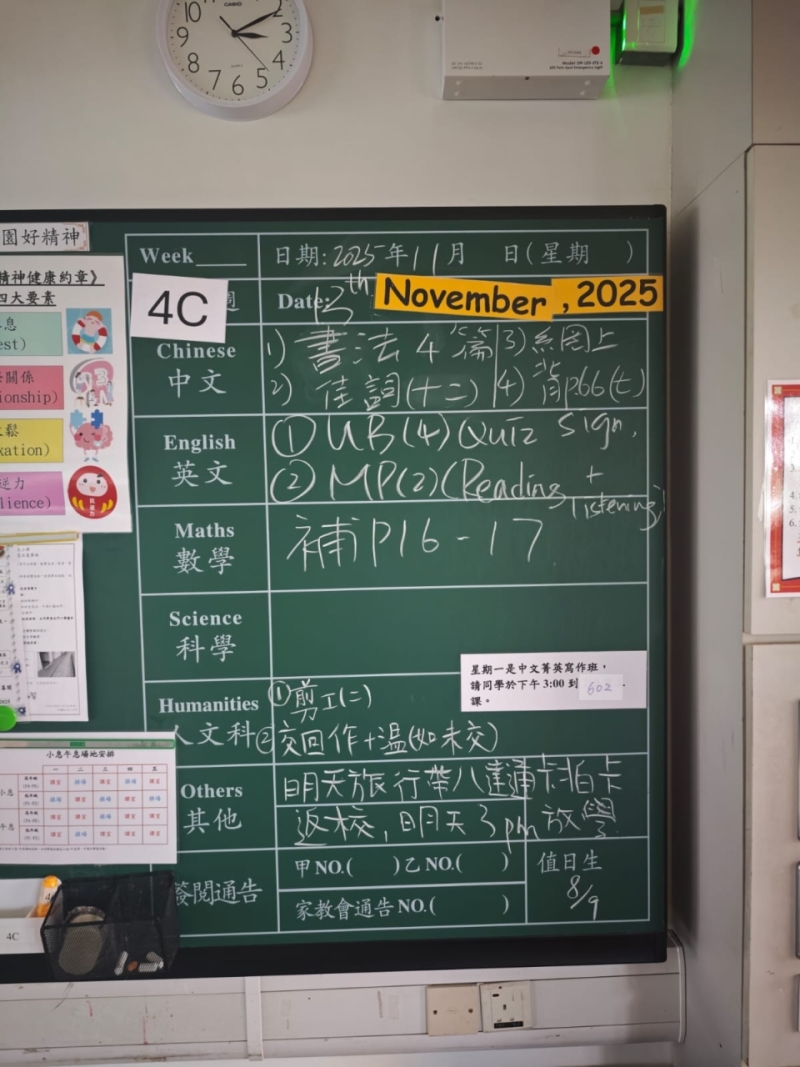 CASIO
10
2
3
4
5
6
7
8
9
QUARTZ
園好精神
精神健康約章》
四大要素
息
est)
關係
ionship)
鬆
xation)
逆力
lience)
Week
日期: 2025年11月 日(星期 )
4C
週
Date: 13th November , 2025
Chinese
中文
1) 書法4篇 3) 網上
2) 佳詞(十二) 4) 背p66(七)
English
英文
① UB(4) Quiz sign.
② MP(2)(Reading + listening)
Maths
數學
補P16-17
Science
科學
星期一是中文菁英寫作班，
請同學於下午 3:00 到 602
課。
Humanities
人文科
①剪工(二)
②交回作+溫(如未交)
Others
其他
明天旅行帶八達通卡拍卡
返校,明天3pm放學
簽閱通告
甲NO.( )乙NO.( )
家教會通告NO.( )
值日生
8/9
小息午息場地安排
一 二 三 四 五
小息
午息
4C
4.
5.
6.